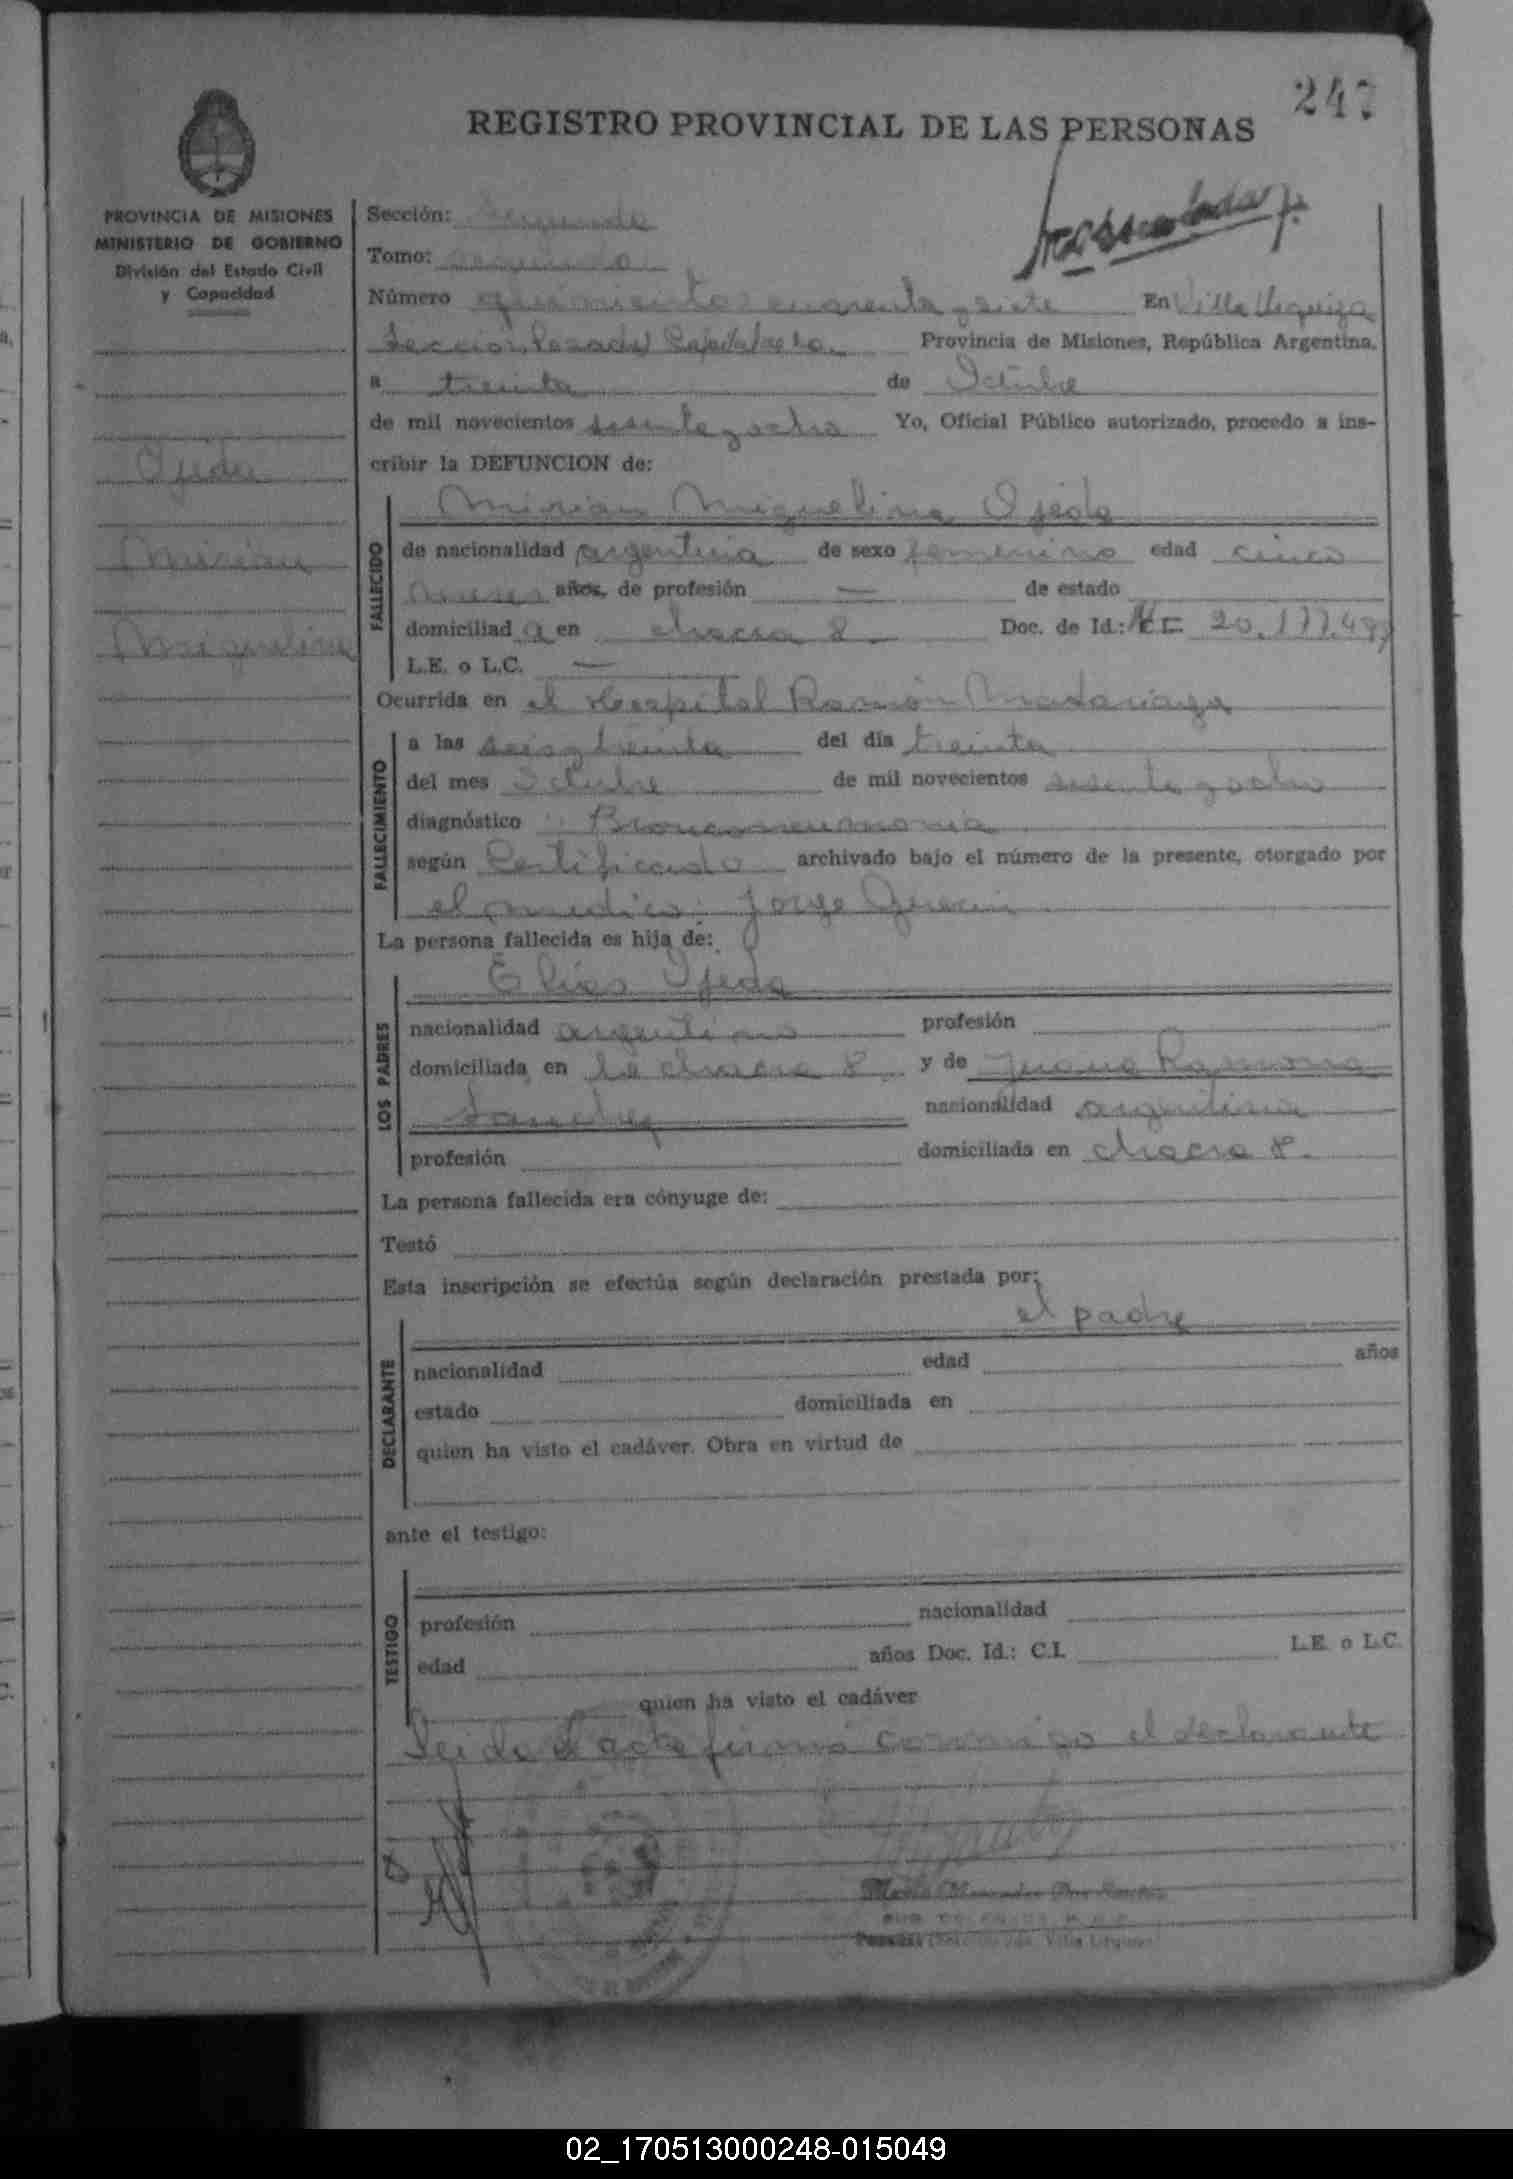 247
REGISTRO PROVINCIAL DE LAS PERSONAS
PROVINCIA DE MISIONES
MINISTERIO DE GOBIERNO
División del Estado Civil
y Capacidad
Ojeda
Mirian
Miguelina
Sección: Segunda
Tomo: segundo
Número quinientos cuarenta y siete En Villa Urquiza
Sección Posadas Provincia de Misiones, República Argentina,
a treinta de Octubre
de mil novecientos sesenta y ocho Yo, Oficial Público autorizado, procedo a ins-
cribir la DEFUNCION de:
Mirian Miguelina Ojeda
FALLECIDO
de nacionalidad argentina de sexo femenino edad cinco
meses años, de profesión — de estado
domiciliad a en chacra 8. Doc. de Id.: 20.177.499
L.E. o L.C. —
Ocurrida en el Hospital Ramón Madariaga
FALLECIMIENTO
a las seis y treinta del día treinta
del mes Octubre de mil novecientos sesenta y ocho
diagnóstico : Bronconeumonia
según Certificado archivado bajo el número de la presente, otorgado por
el medico: Jorge
La persona fallecida es hija de:
Elias Ojeda
LOS PADRES
nacionalidad argentino profesión
domiciliada en la chacra 8. y de Juana Ramona
Sanchez nacionalidad argentina
profesión domiciliada en chacra 8.
La persona fallecida era cónyuge de:
Testó
Esta inscripción se efectúa según declaración prestada por:
el padre
DECLARANTE
nacionalidad edad años
estado domiciliada en
quien ha visto el cadáver. Obra en virtud de
ante el testigo:
TESTIGO
profesión nacionalidad
edad años Doc. Id.: C.I. L.E. o L.C.
quien ha visto el cadáver
Leida el acta firma conmigo el declarante
02_170513000248-015049